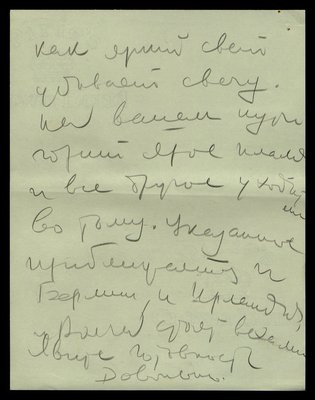 как яркий свет
убивает свечу.
На вашем пути
горит яркое пламя
и все другое уходит
во тьму. Указанное
приближается и
Берлин, и Ирландия,
Довольно.